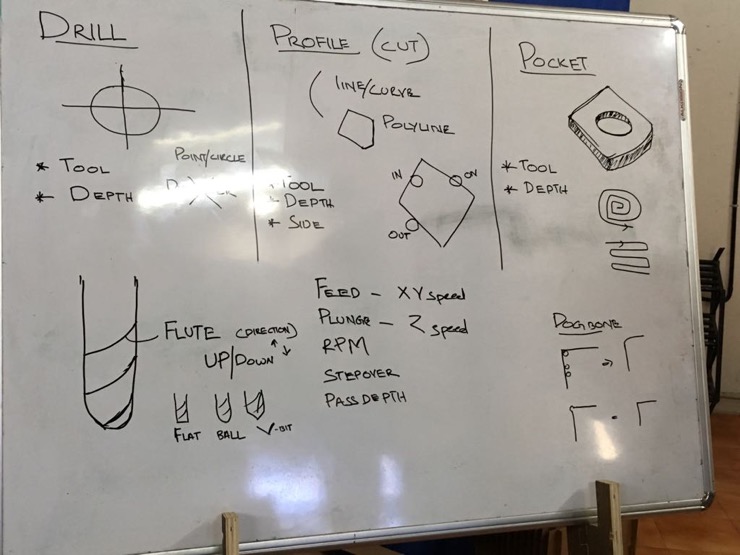 DRILL
POINT/CIRCLE
* TOOL
* DEPTH
PROFILE (CUT)
LINE/CURVE
POLYLINE
TOOL
DEPTH
* SIDE
IN
ON
OUT
POCKET
* TOOL
* DEPTH
FLUTE (DIRECTION)
UP/DOWN ↑↓
FLAT
BALL
V-BIT
FEED - XY speed
PLUNGE - Z speed
RPM
STEPOVER
PASS DEPTH
DOGBONE